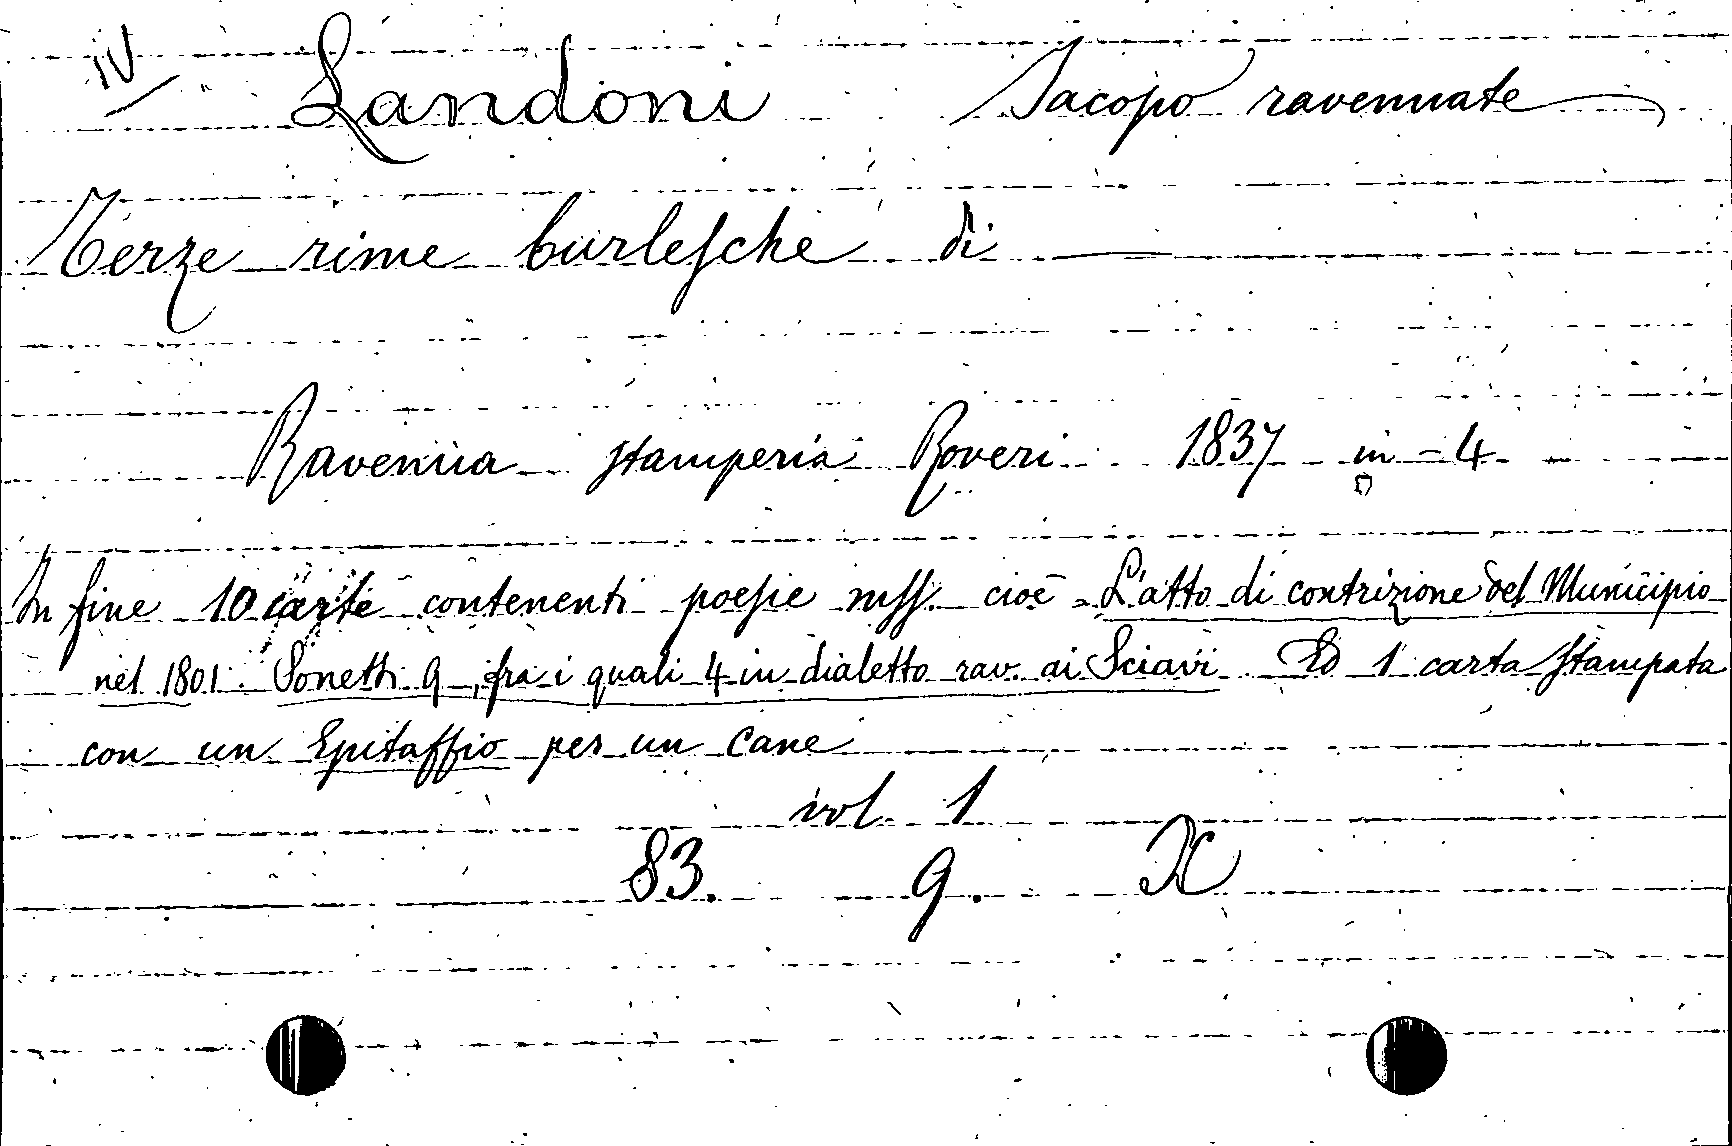 IV Landoni Jacopo ravennate
Terze rime burlesche di
Ravenna stamperia Roveri 1837 in-4
In fine 10 carte contenenti poesie mss. cioè L'atto di contrizione del Municipio
nel 1801. Sonetti 9, fra i quali 4 in dialetto rav. ai Sciavi Ed 1 carta stampata
con un Epitaffio per un Cane
vol. 1
83. 9. X